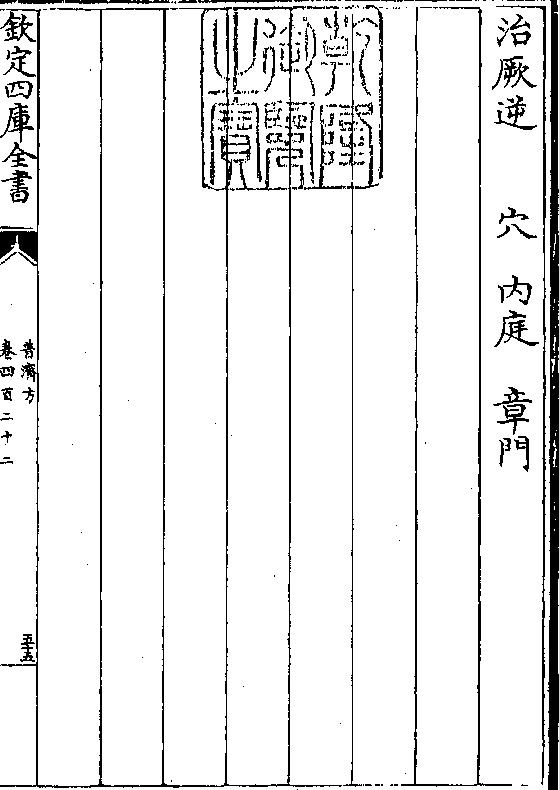 治厥逆　穴　内庭　章門
乾隆御覽之寶
欽定四庫全書
普濟方
卷四百二十二
五十五